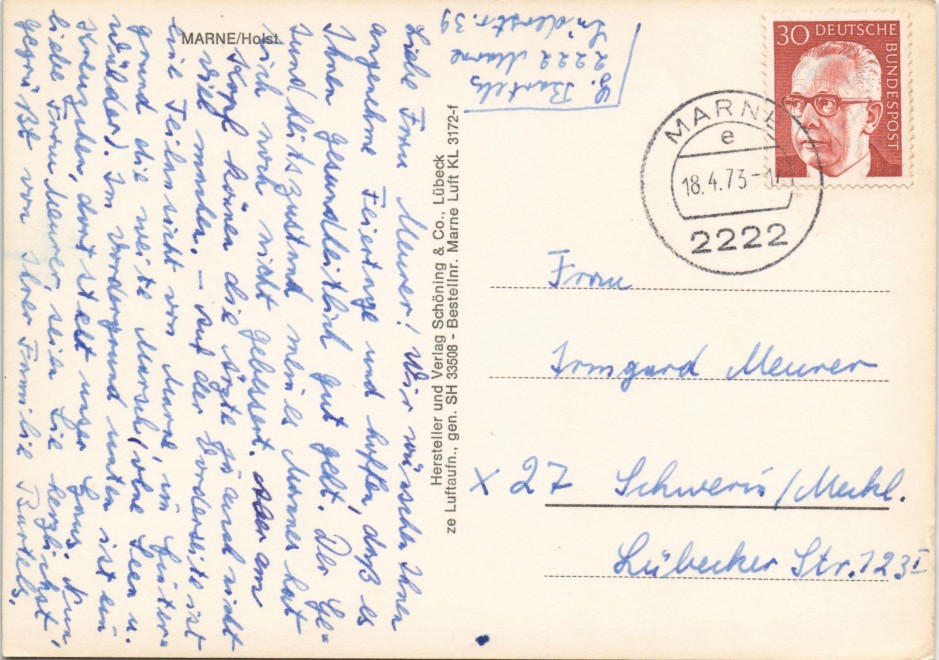 MARNE/Holst
G. Bartels
2222 Marne
Süderstr. 39
Liebe Frau Meurer! Wir wünschen Ihnen
angenehme Feiertage und hoffen, daß es
Ihnen gesundheitlich gut geht. Der Ge-
sundheitszustand meines Mannes hat
sich noch nicht gebessert. Aber am
Kopf können die Ärzte ja auch nicht
viel machen. – Auf der Vorderseite ist
eine Teilansicht von Marne, im Hinter-
grund die weite Marsch (ohne Seen u.
Wälder). Im Vordergrund unten ist ein
Kreuzchen, dort steht unser Haus. Nun
liebe Frau Meurer, seien Sie herzlichst
gegrüßt von Ihrer Familie Bartels.
Hersteller und Verlag Schöning & Co., Lübeck
ze Luftaufn., gen. SH 33508 - Bestellnr. Marne Luft KL 3172-f
30 DEUTSCHE
BUNDESPOST
MARNE
e
18.4.73-
2222
Frau
Irmgard Meurer
X 27 Schwerin/Meckl.
Lübecker Str. 123 I